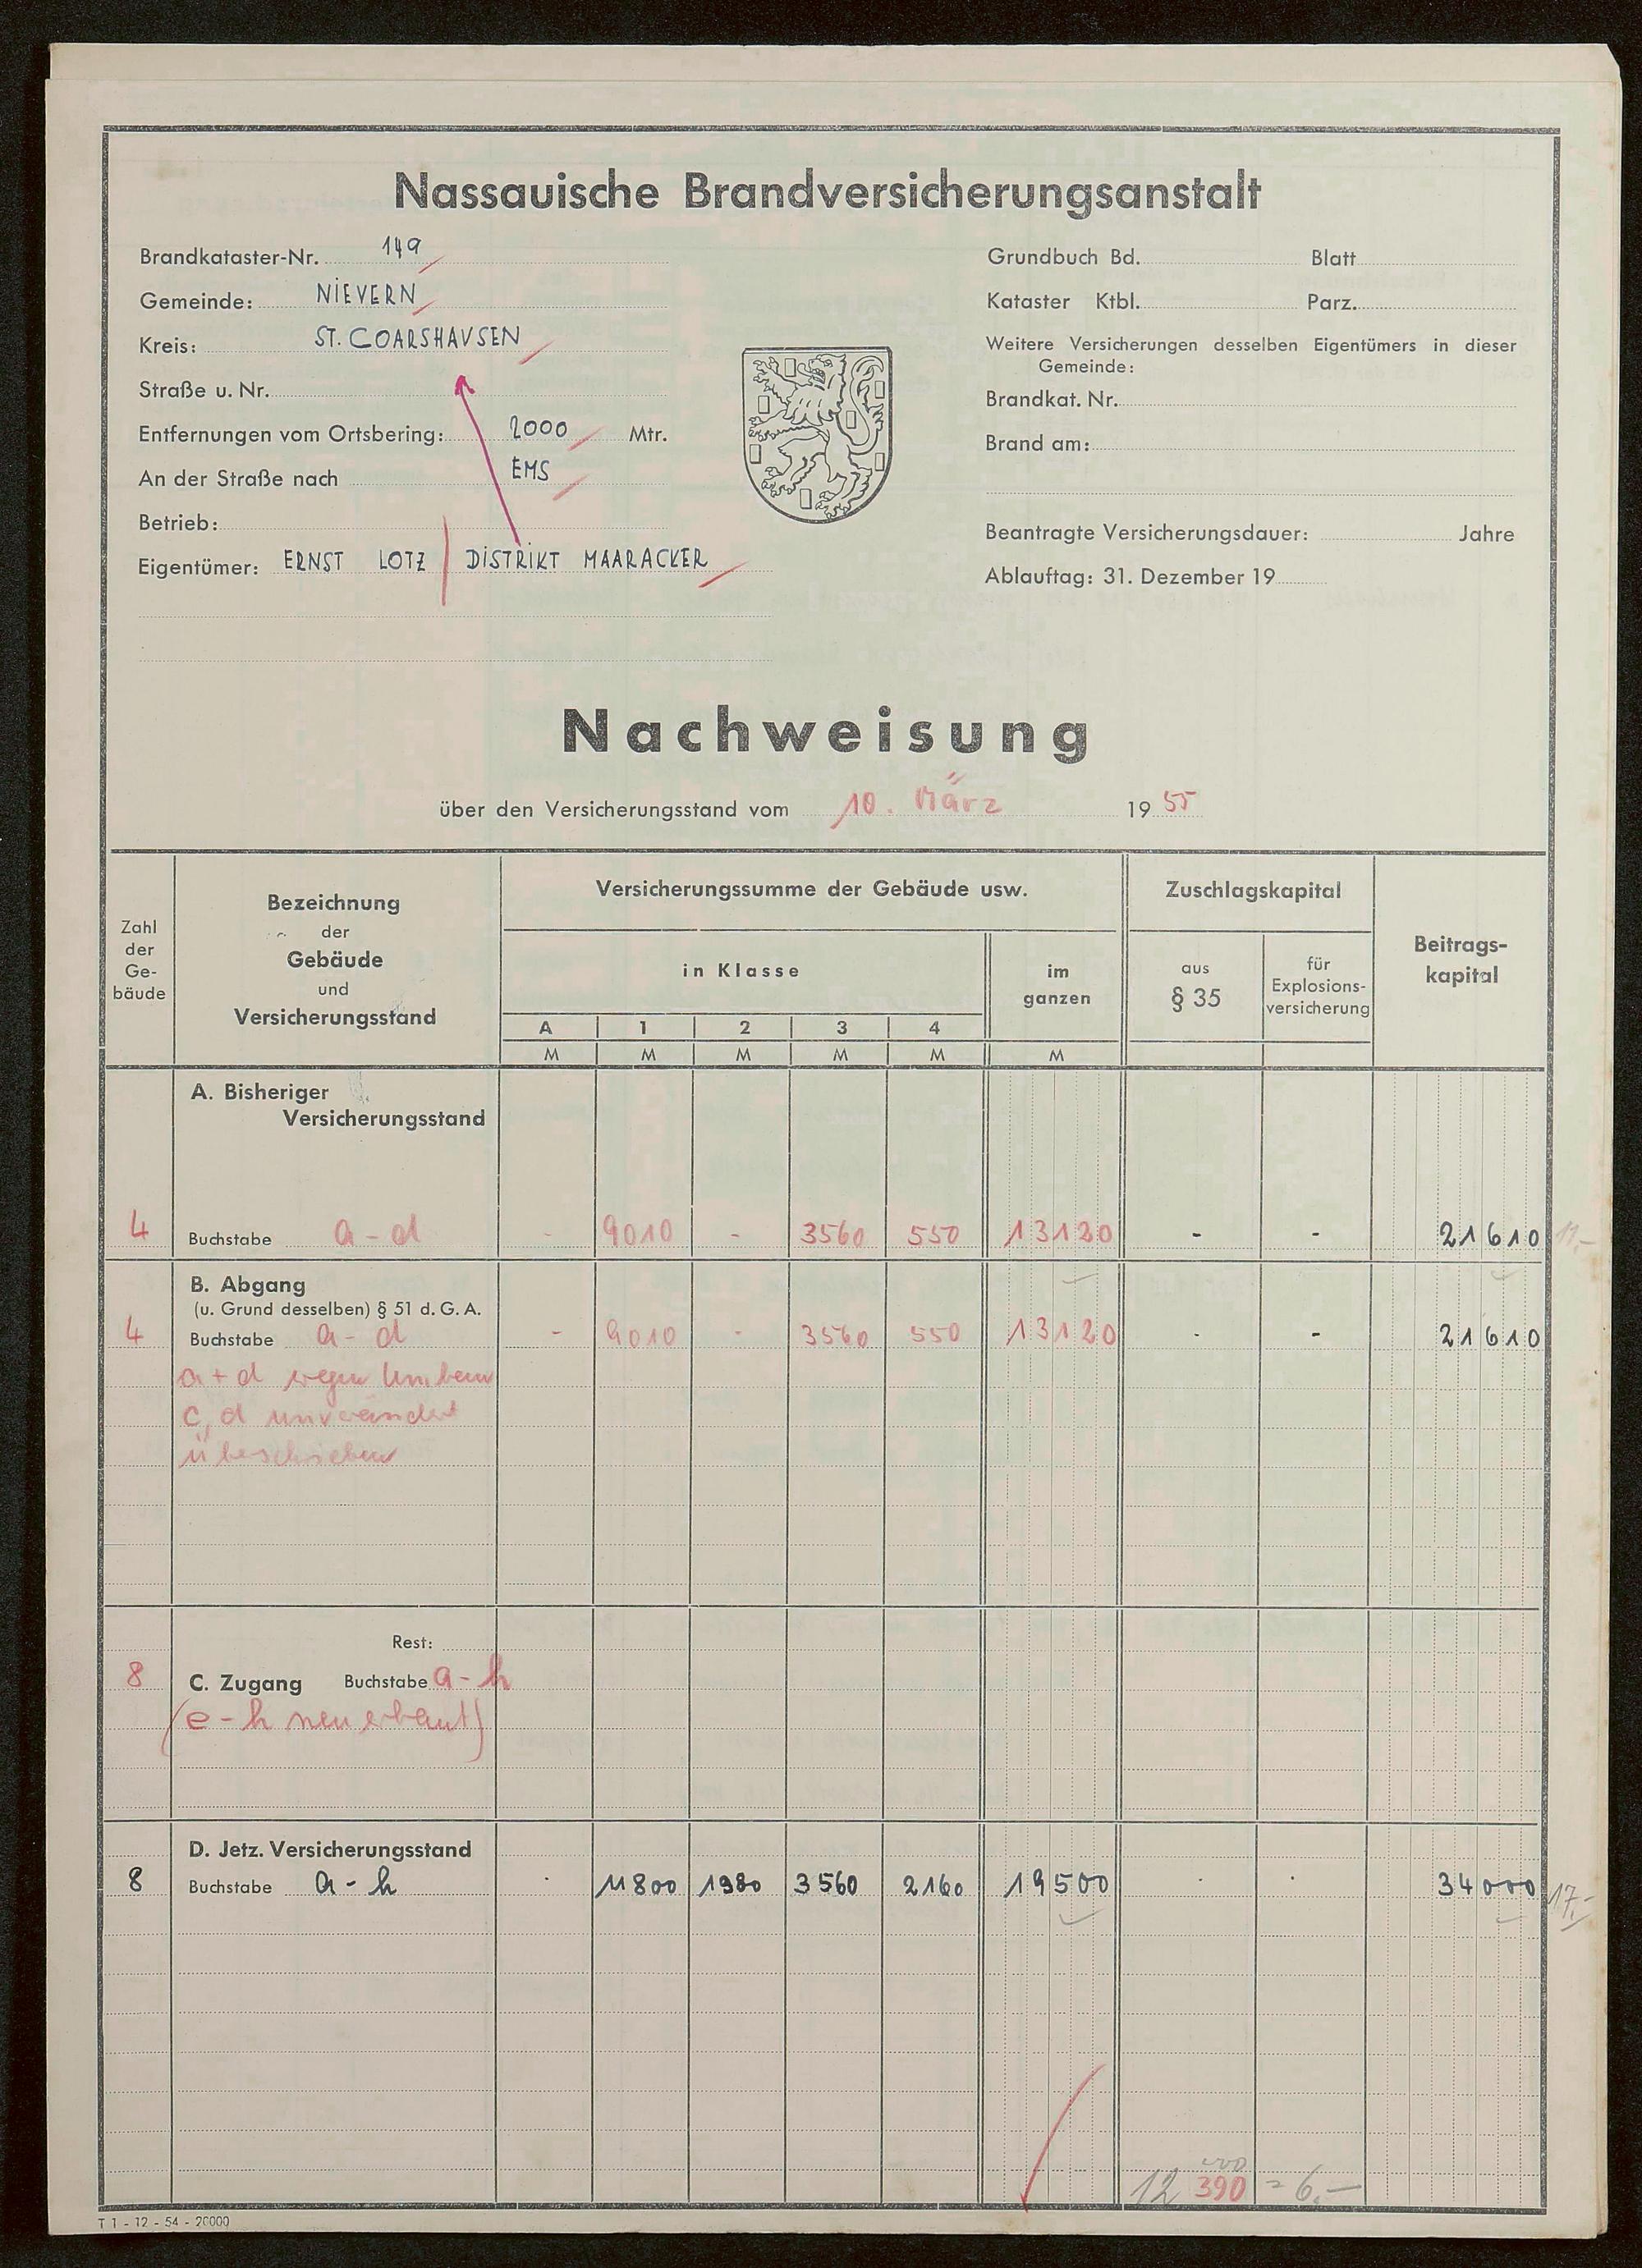 Nassauische Brandversicherungsanstalt
Brandkataster-Nr. 149
Gemeinde: NIEVERN
Kreis: ST. GOARSHAUSEN
Straße u. Nr.
Entfernungen vom Ortsbering: 2000 Mtr.
An der Straße nach EMS
Betrieb:
Eigentümer: ERNST LOTZ / DISTRIKT MAARACKER
Grundbuch Bd. Blatt
Kataster Ktbl. Parz.
Weitere Versicherungen desselben Eigentümers in dieser
Gemeinde:
Brandkat. Nr.
Brand am:
Beantragte Versicherungsdauer: Jahre
Ablauftag: 31. Dezember 19
Nachweisung
über den Versicherungsstand vom 10. März 1955
Zahl
der
Ge-
bäude
Bezeichnung
der
Gebäude
und
Versicherungsstand
Versicherungssumme der Gebäude usw.
in Klasse
A 1 2 3 4
M M M M M
im
ganzen
M
Zuschlagskapital
aus
§ 35
für
Explosions-
versicherung
Beitrags-
kapital
A. Bisheriger
Versicherungsstand
4 Buchstabe a - d - 9010 - 3560 550 13120 - - 21610 11,-
B. Abgang
(u. Grund desselben) § 51 d. G. A.
4 Buchstabe a - d - 9010 - 3560 550 13120 - - 21610
a + d wegen Umbau
c, d unverändert
überschrieben
Rest:
8 C. Zugang Buchstabe a - h
(e - h neu erbaut)
D. Jetz. Versicherungsstand
8 Buchstabe a - h - 11800 1980 3560 2160 19500 - - 34000 17,-
12 390 = 6,-
T 1 - 12 - 54 - 20000